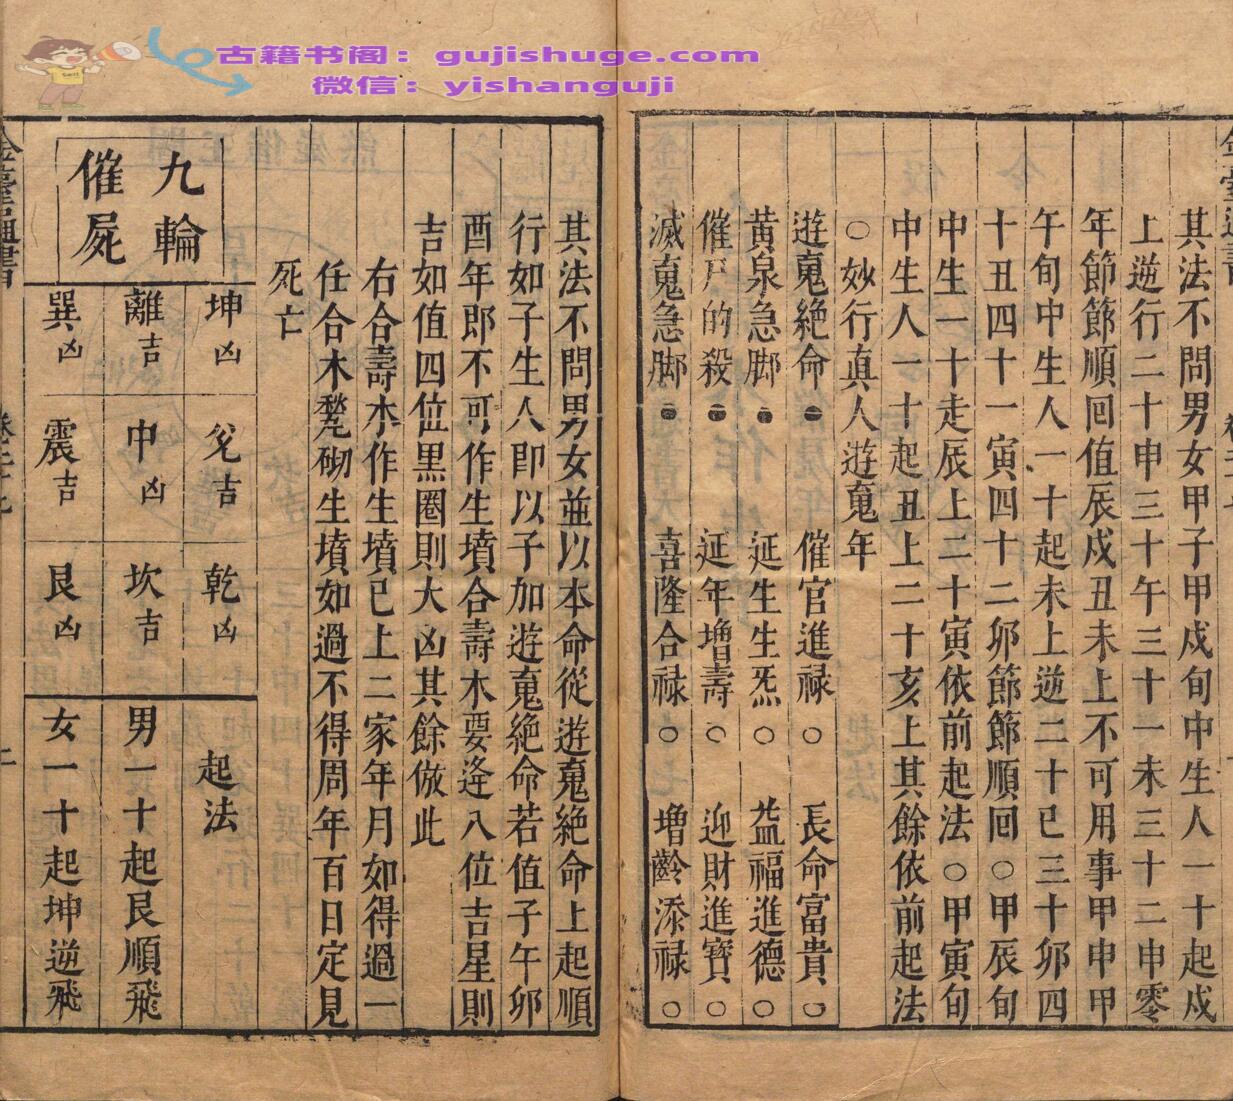 古籍书阁：gujishuge.com
微信：yishanguji
其法不問男女甲子甲戍旬中生人一十起戍
上逆行二十申三十午三十一未三十二申零
年節節順回值辰戍丑未上不可用事甲申甲
午旬中生人一十起未上逆二十巳三十卯四
十丑四十一寅四十二卯節節順回○甲辰旬
中生一十走辰上二十寅依前起法○甲寅旬
中生人一十起丑上二十亥上其餘依前起法
○妙行真人遊䰟年
遊䰟絶命●　催官進禄○　長命富貴○
黄泉急脚●　延生生炁○　益福進德○
催尸的殺●　延年增壽○　迎財進寶○
滅䰟急脚●　喜隆合禄○　增齡添禄○
其法不問男女並以本命從遊䰟絶命上起順
行如子生人即以子加遊䰟絶命若值子午卯
酉年郎不可作生墳合壽木要逄八位吉星則
吉如值四位黑圈則大凶其餘倣此
右合壽木作生墳已上二家年月如得過一
任合木甃砌生墳如過不得周年百日定見
死亡
九輪
催屍
坤凶　兊吉　乾凶　起法
離吉　中凶　坎吉　男一十起艮順飛
巽凶　震吉　艮凶　女一十起坤逆飛